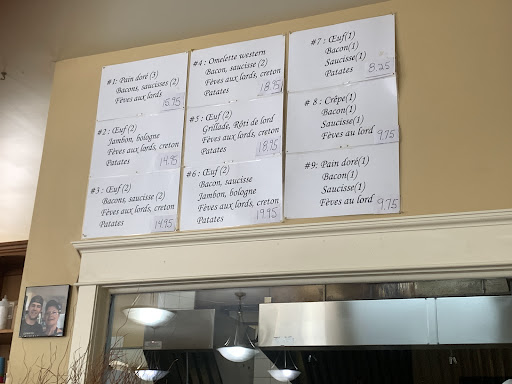 #1 : Pain doré (3)
Bacons, saucisses (2)
Fèves aux lards
15.95
#2 : Œuf (2)
Jambon, bologne
Fèves aux lords, creton
Patates
14.95
#3 : Œuf (2)
Bacons, saucisse (2)
Fèves aux lords, creton
Patates 14.95
#4 : Omelette western
Bacon, saucisse (2)
Fèves aux lards, creton
Patates 18.95
#5 : Œuf (2)
Grillade, Rôti de lord
Fèves aux lords, creton
Patates 18.95
#6 : Œuf (2)
Bacon, saucisse
Jambon, bologne
Fèves aux lords, creton
Patates 19.95
#7 : Œuf(1)
Bacon(1)
Saucisse(1)
Patates 8.25
# 8 : Crêpe(1)
Bacon(1)
Saucisse(1)
Fèves au lord 9.75
#9: Pain doré(1)
Bacon(1)
Saucisse(1)
Fèves au lord 9.75